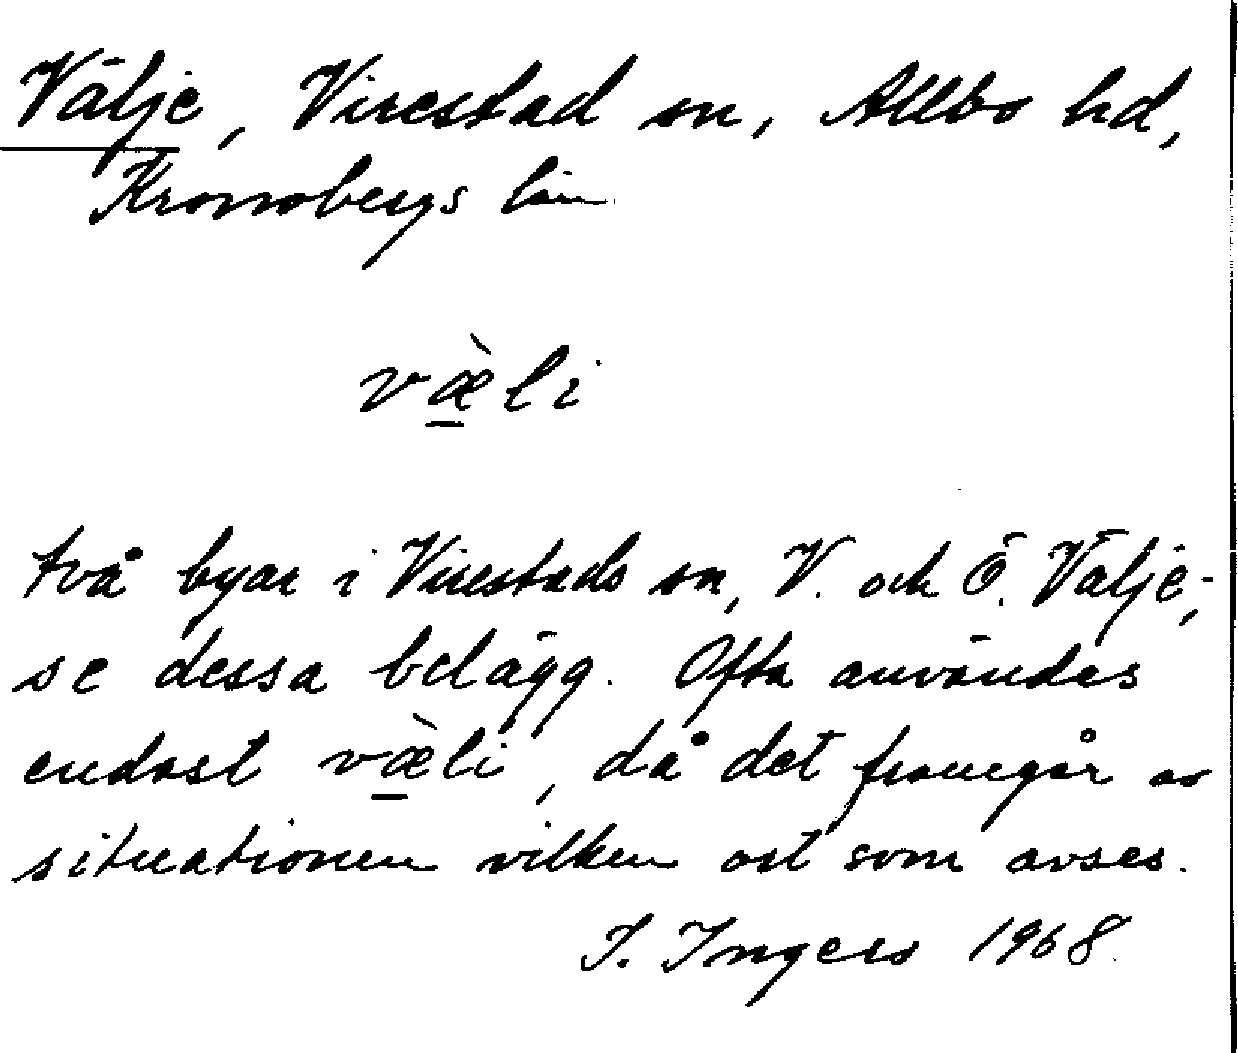 Välje, Virestad sn, Allbo hd,
Kronobergs län
væ̠̀li
två byar i Virestads sn, V. och Ö. Välje;
se dessa belägg. Ofta användes
endast væ̠̀li, då det framgår av
situationen vilken ort som avses.
I. Ingers 1968.